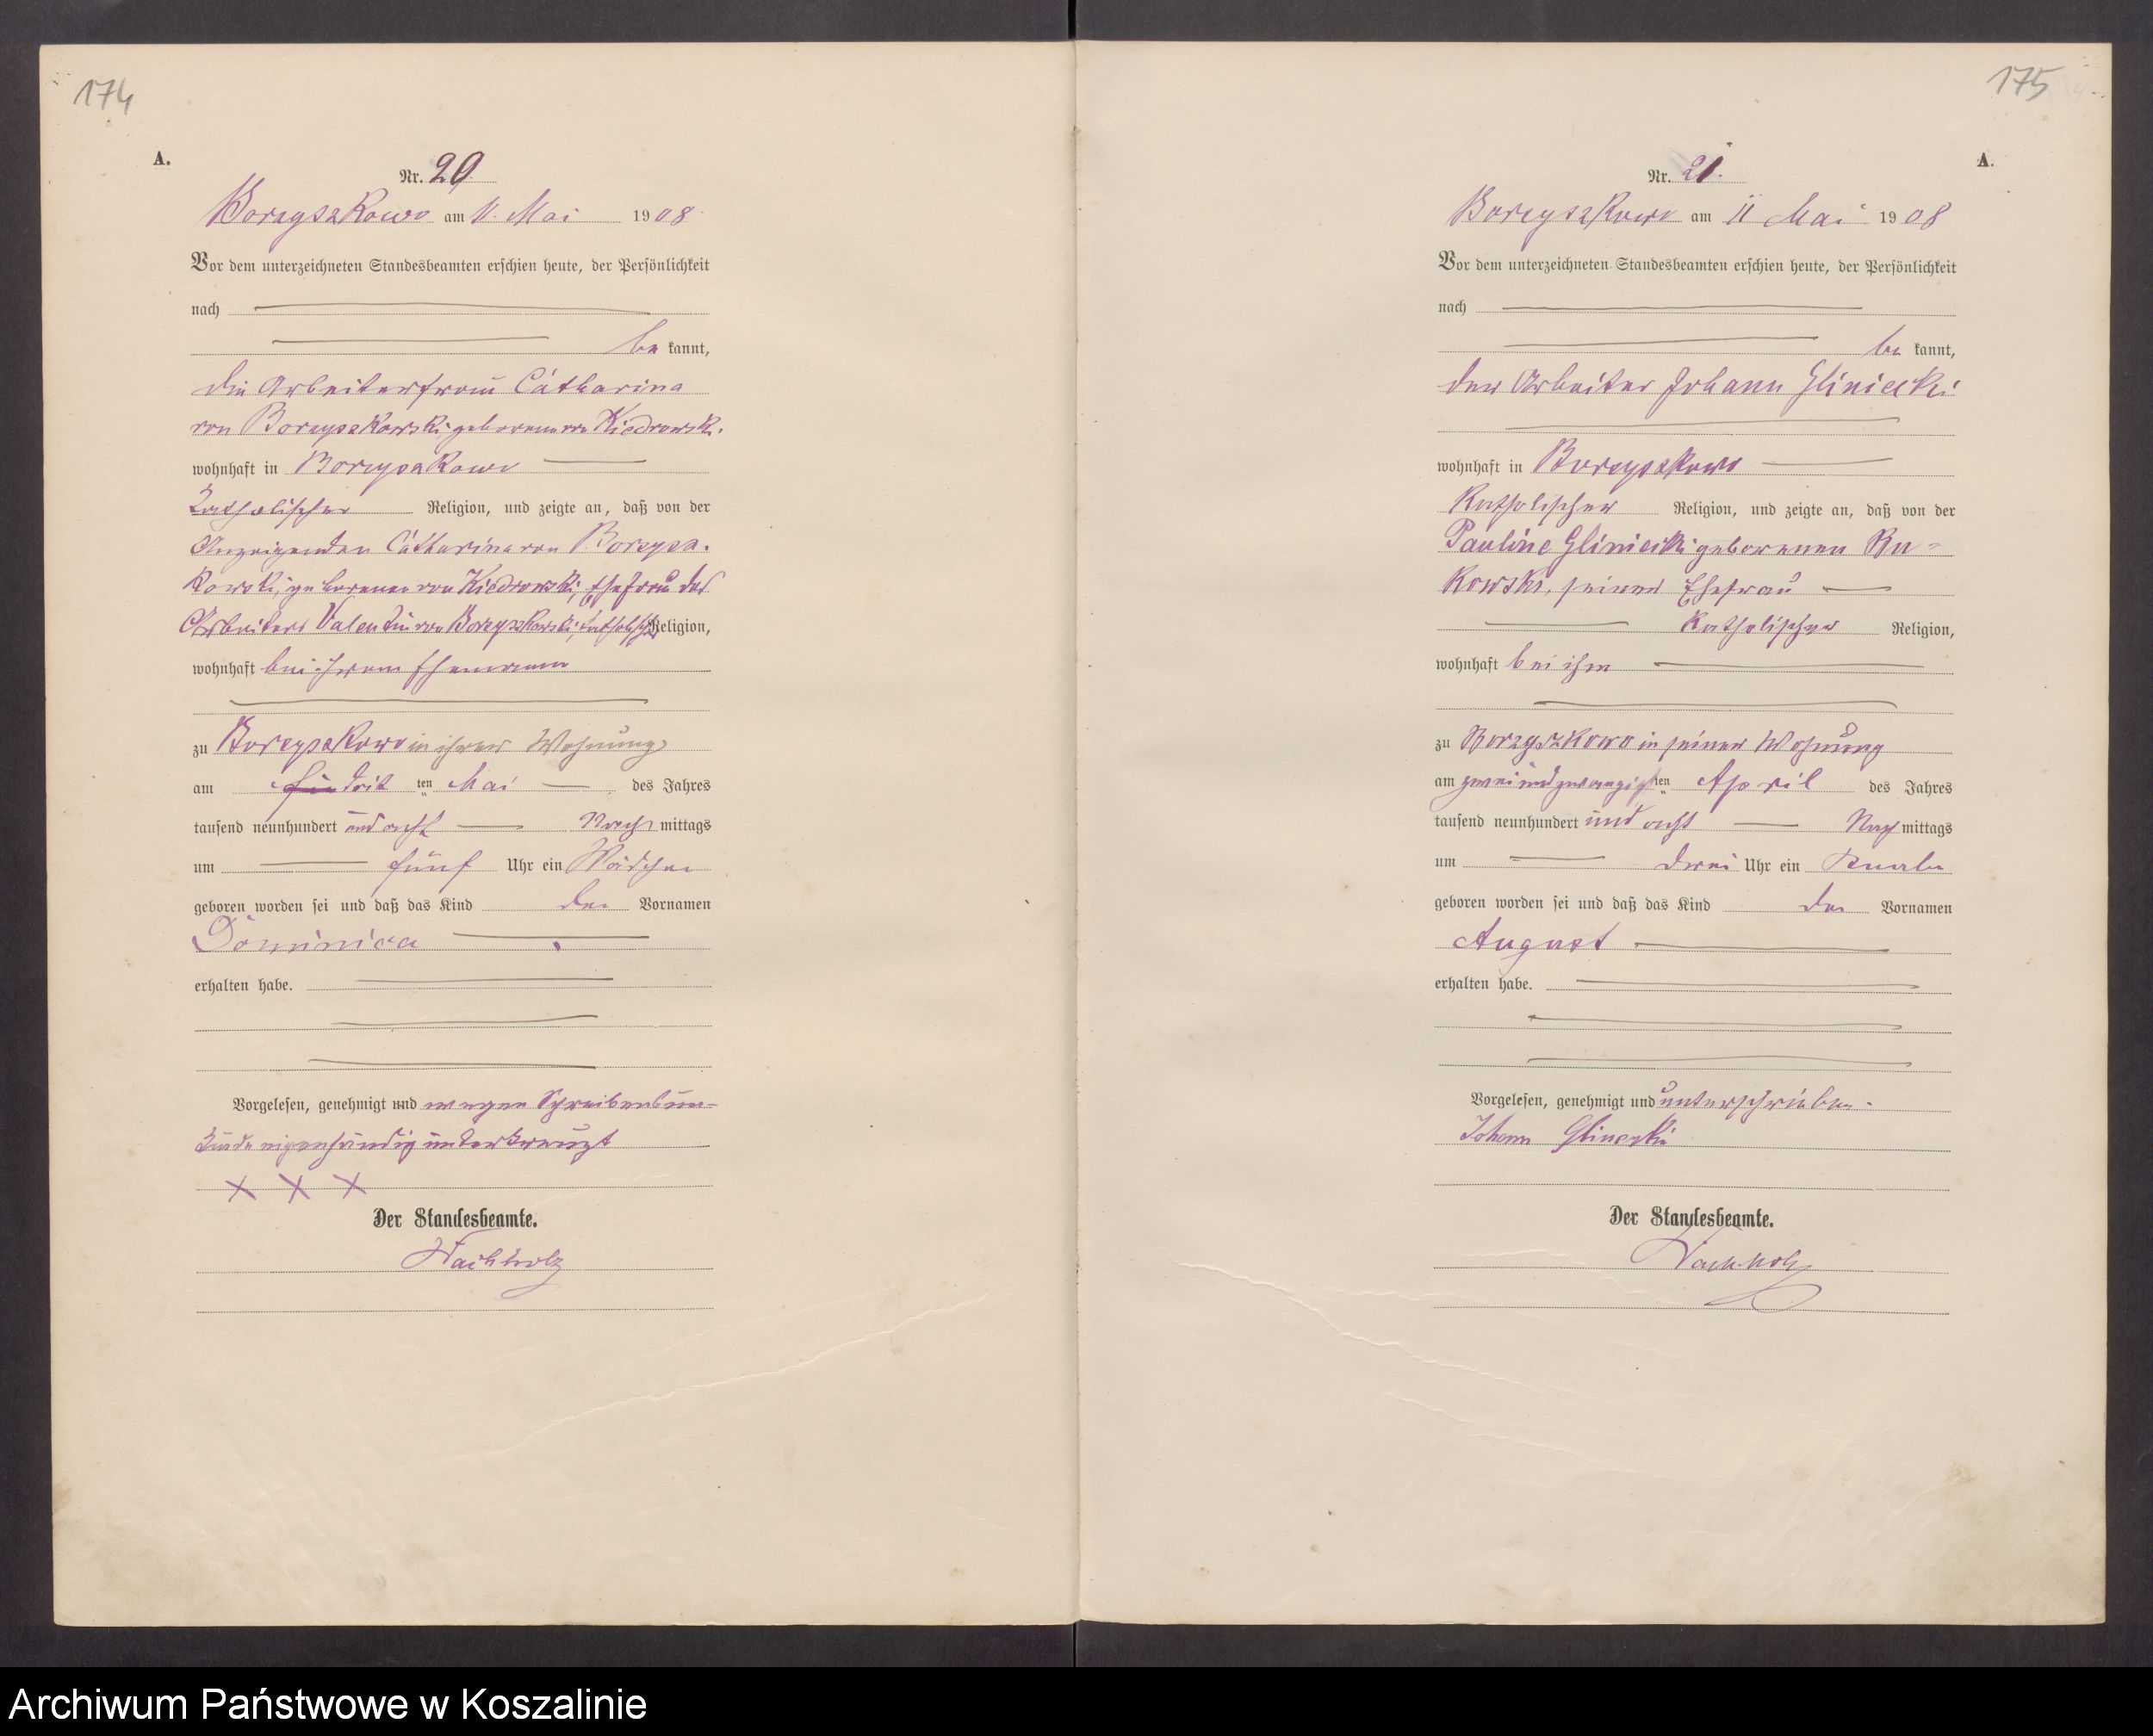 174
A.
Nr. 20
Borzyszkowo am 11. Mai 1908
Vor dem unterzeichneten Standesbeamten erschien heute, der Persönlichkeit
nach
be kannt,
die Arbeiterfrau Catharina
von Borzyszkowski geborene von Kiedrowski
wohnhaft in Borzyszkowo
katholischer Religion, und zeigte an, daß von der
Anzeigenden Catharina von Borzysz-
kowski, geborenen von Kiedrowski, Ehefrau des
Arbeiters Valentin von Borzyszkowski, katholischer Religion,
wohnhaft bei ihrem Ehemann
zu Borzyszkowo in ihrer Wohnung
am dritten Mai des Jahres
tausend neunhundert und acht Nach mittags
um fünf Uhr ein Mädchen
geboren worden sei und daß das Kind den Vornamen
Dominica
erhalten habe.
Vorgelesen, genehmigt und wegen Schreibensun-
kunde eigenhändig unterkreuzt
X X X
Der Standesbeamte.
Wachholz
175
A.
Nr. 21.
Borzyszkowo am 11 Mai 1908
Vor dem unterzeichneten Standesbeamten erschien heute, der Persönlichkeit
nach
be kannt,
der Arbeiter Johann Gliniecki
wohnhaft in Borzyszkowo
katholischer Religion, und zeigte an, daß von der
Pauline Gliniecki geborenen Ru-
kowski, seiner Ehefrau
katholischer Religion,
wohnhaft bei ihm
zu Borzyszkowo in seiner Wohnung
am zweiundzwanzigsten April des Jahres
tausend neunhundert und acht Nach mittags
um drei Uhr ein Knabe
geboren worden sei und daß das Kind den Vornamen
August
erhalten habe.
Vorgelesen, genehmigt und unterschrieben.
Johann Glinecki
Der Standesbeamte.
Wachholz
Archiwum Państwowe w Koszalinie